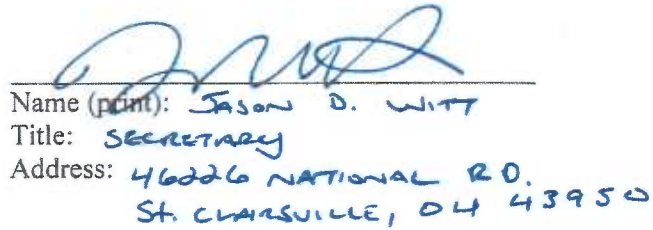 Name (print): JASON D. WITT
Title: SECRETARY
Address: 46226 NATIONAL RD.
St. CLAIRSVILLE, OH 43950